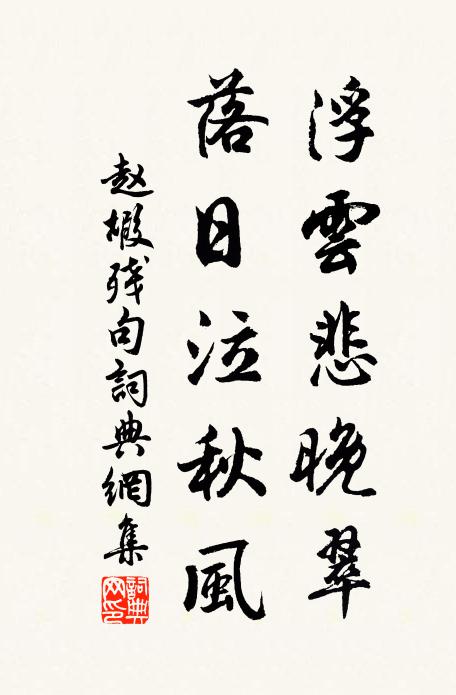 浮雲悲晚翠
落日泣秋風
赵椵残句詞典網集
詞典網印